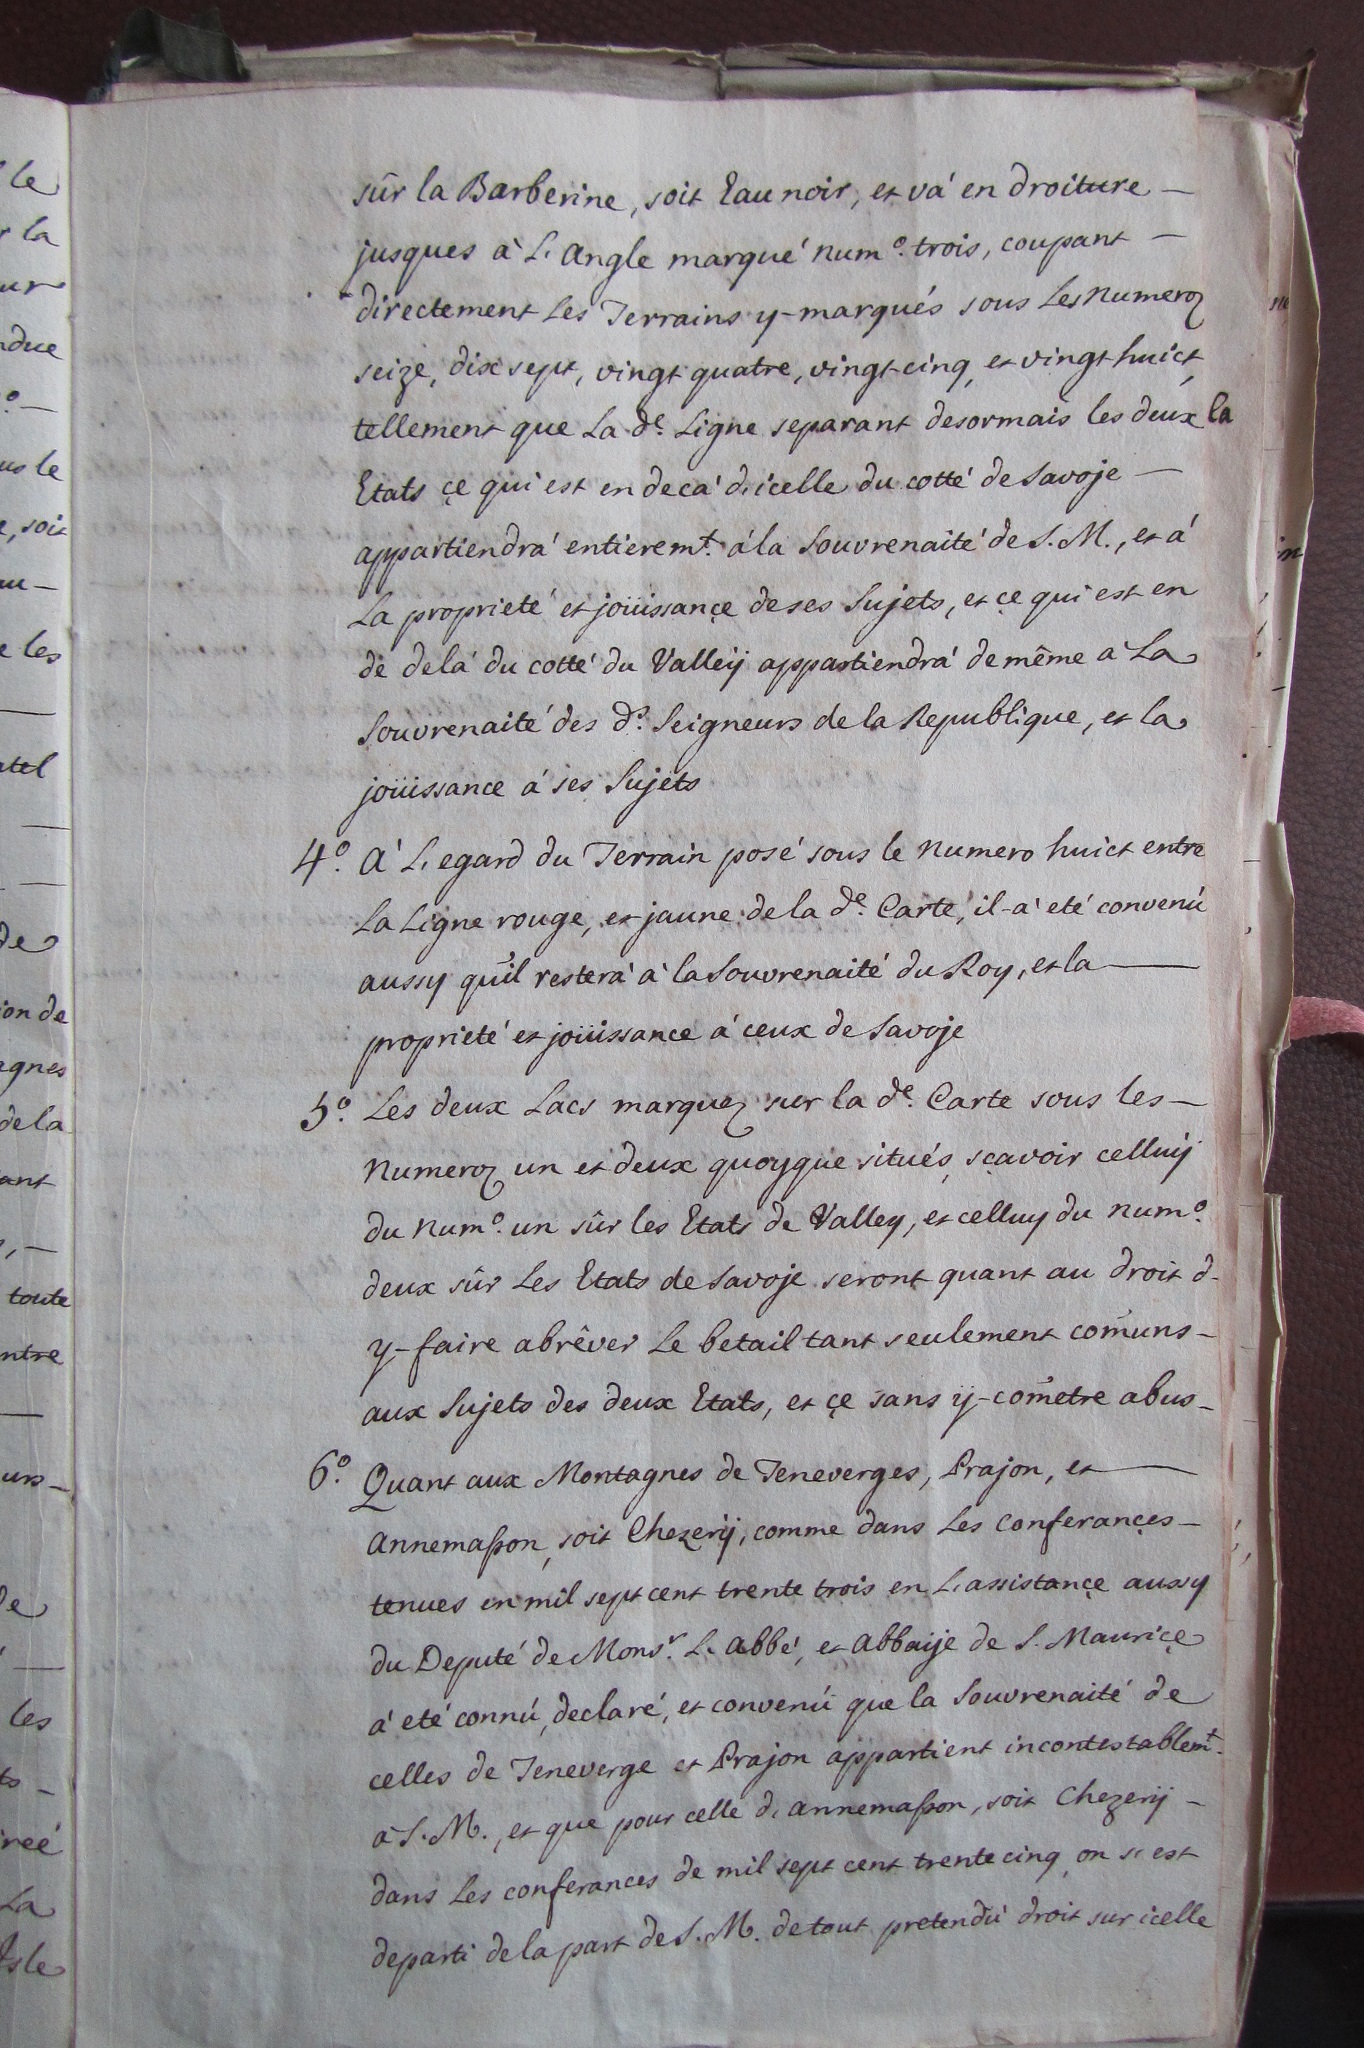 sûr la Barberine, soit Eau noir, et và en droiture —
jusques à L'angle marqué num.° trois, coupant —
directement Les Terrains y-marqués sous Les Numeroz
seize, dix sept, vingt quatre, vingt cinq, et vingt huict,
tellement que La d.e Ligne separant desormais les deux la
Etats çe qui est en decà d'icelle du cotté de Savoje —
appartiendrà entierem.t à la Souvrenaité de S. M., et à
La proprieté et joüissançe de ses Sujets, et çe qui est en
de delà du cotté du Valleÿ appartiendrà de même à La
Souvrenaité des d.s Seigneurs de la Republique, et la
joüissance à ses Sujets
4.° A' L'egard du Terrain posé sous le numero huict entre
La Ligne rouge, et jaune de la d.e Carte, il-a' eté convenú
aussy qu'il resterà à la Souvrenaité du Roy, et la —
proprieté et joüissance à ceux de Savoje
5.° Les deux Lacs marquez sur la d.e Carte sous les —
Numeroz un et deux quoyque situés, sçavoir celluÿ
du num.° un sûr les Etats de Valley, et celluy du num.°
deux sûr Les Etats de Savoje seront quant au droit d-
y-faire abrêver Le betail tant seulement com̃uns -
aux Sujets des deux Etats, et çe sans ÿ-com̃etre abus -
6.° Quant aux Montagnes de Teneverges, Prajon, et —
Annemasson, soit Chezerÿ, comme dans Les Conferançes —
tenues en mil sept cent trente trois en L'assistançe aussy
du Deputé de Mons.r L'Abbé, et Abbaÿe de S. Mauriçe
à eté connú, declaré, et convenú que la Souvrenaité de
celles de Teneverge et Prajon appartient incontestablem.t
à S. M., et que pour celle d'Annemasson, soit Chezerÿ -
dans Les conferances de mil sept cent trente cinq, on s'est
departi de la part de S. M. de tout pretendù droit sur icelle